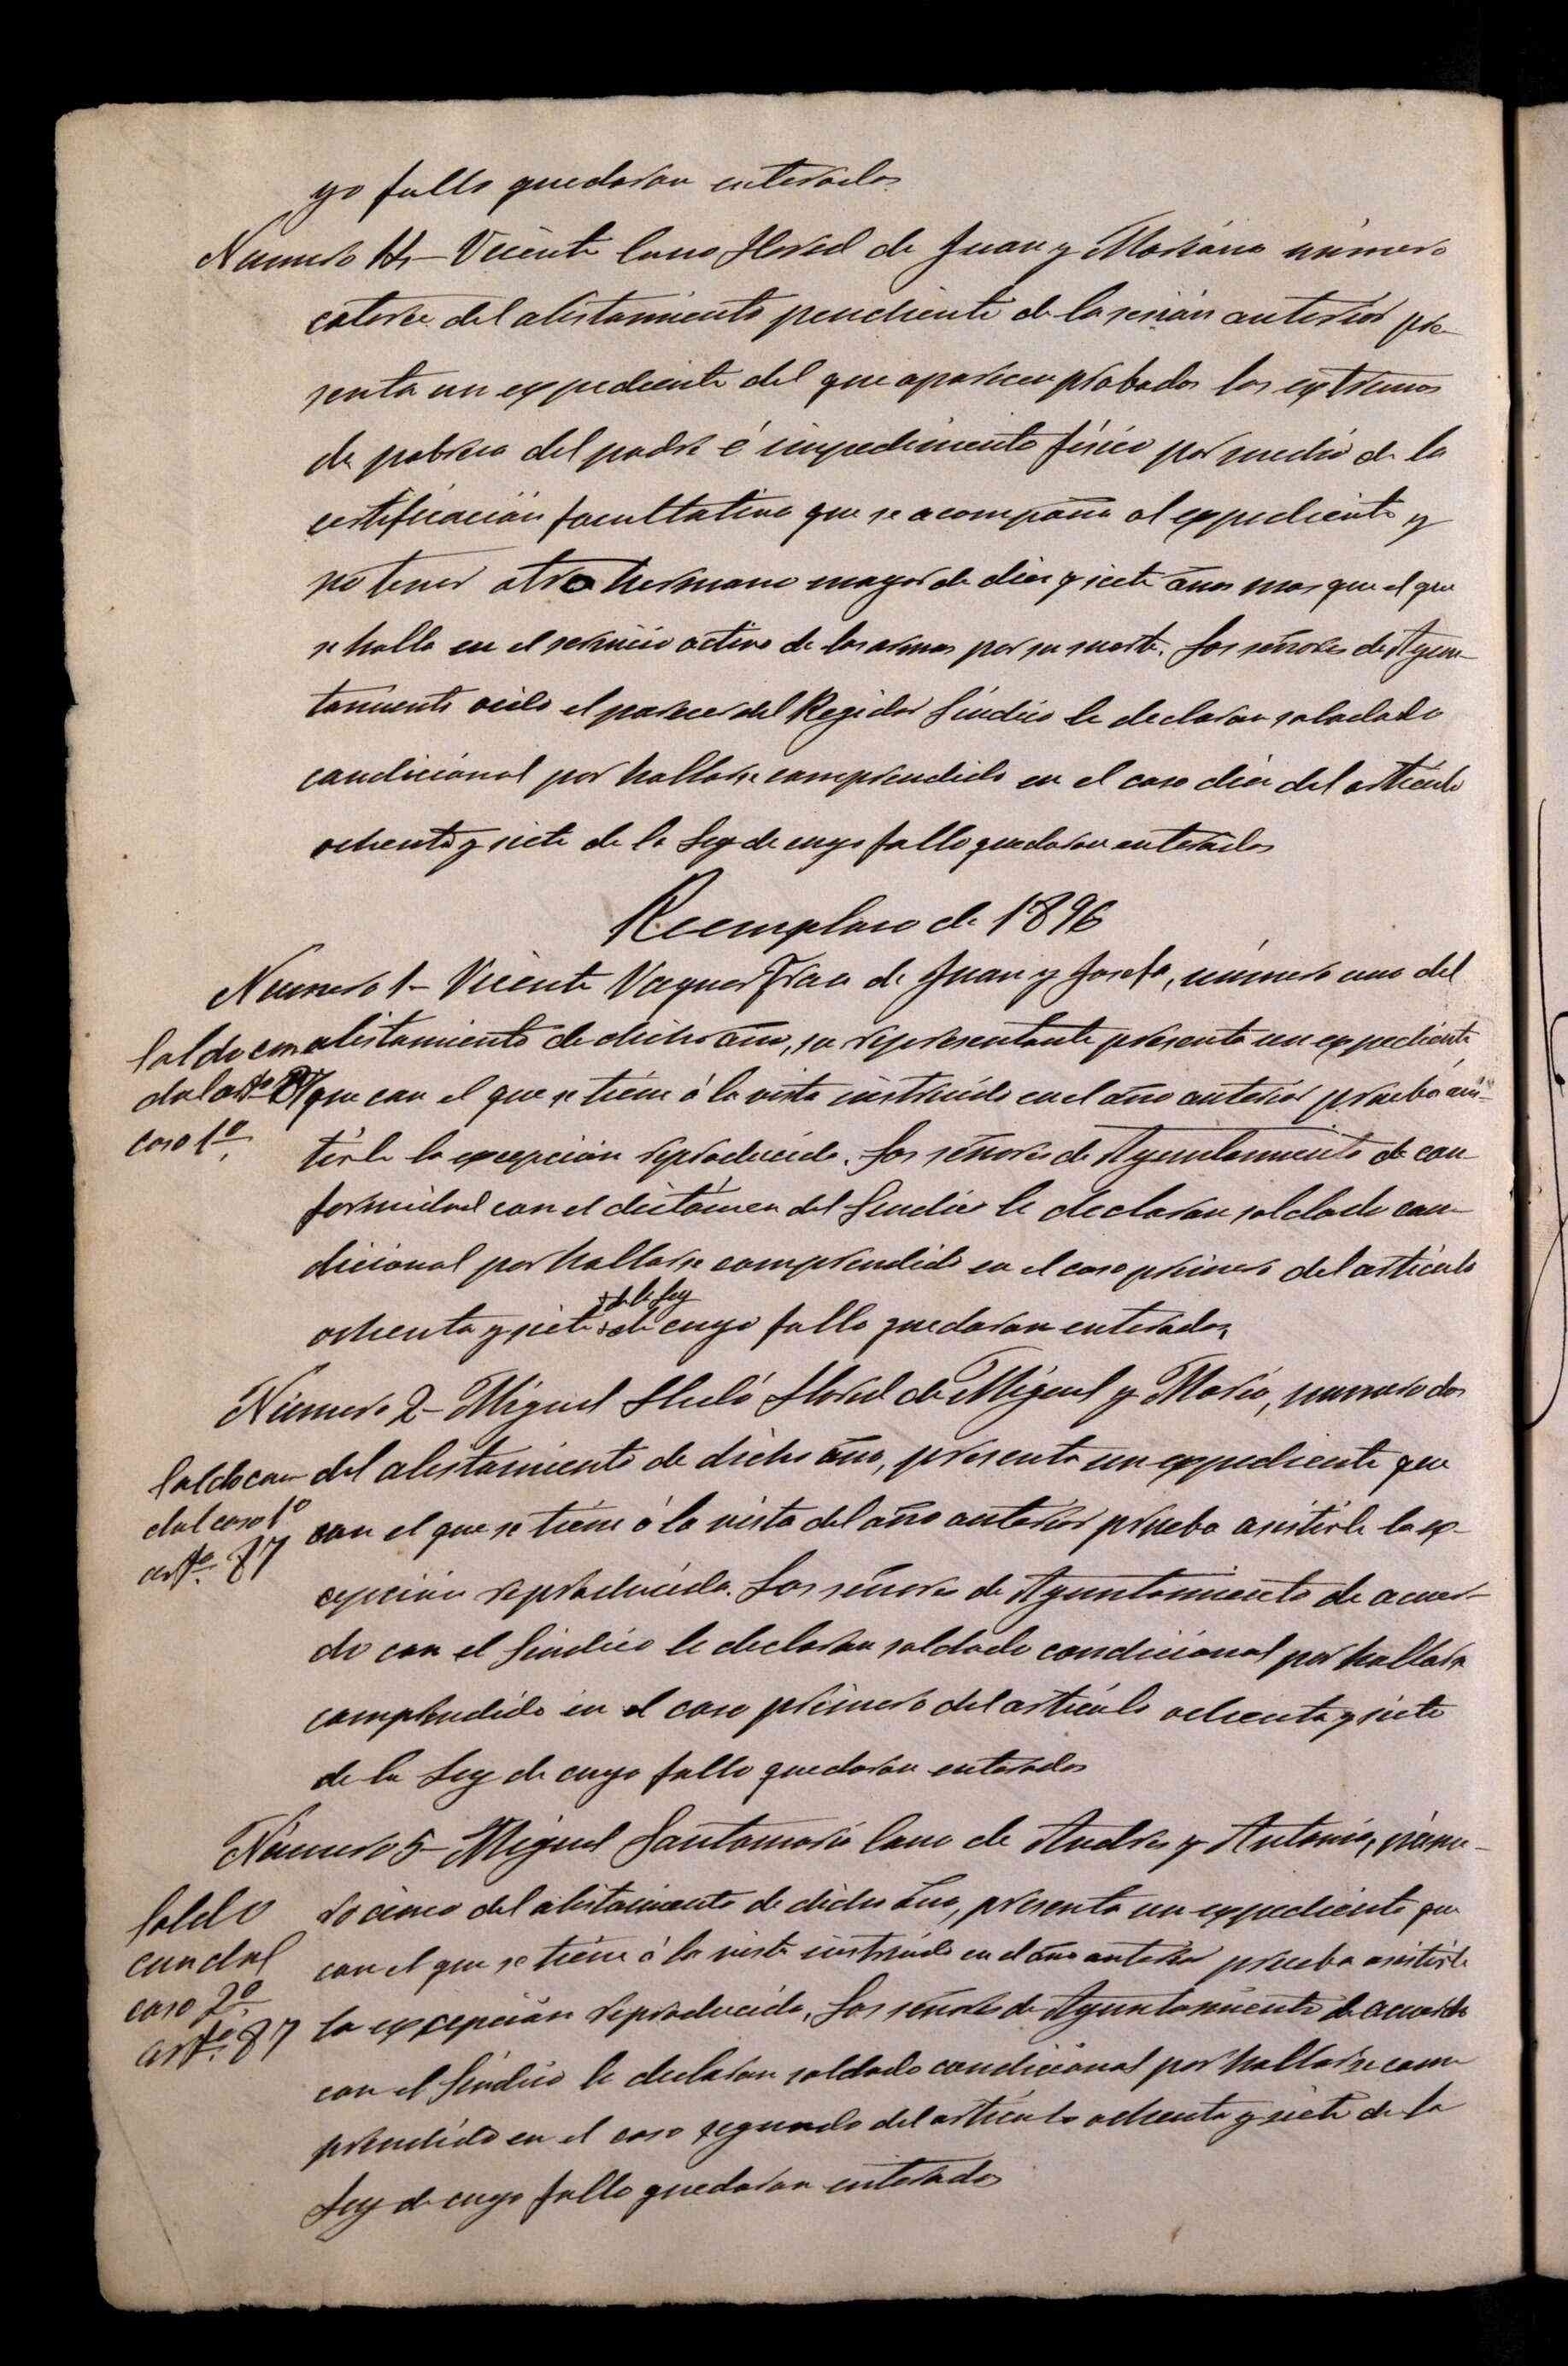 yo fallo quedaron enterados
Numero 14 - Vicente Cano Llored de Juan y Mariana número
catorce del alistamiento pendiente de la sesión anterior pre-
senta un expediente del que aparecen probados los extremos
de pobreza del padre é impedimento físico por medio de la
certificación facultativa que se acompaña al expediente y
no tener otro hermano mayor de diez y siete años mas que el que
se halla en el servicio activo de las armas por su suerte. Los señores de Ayun-
tamiento oido el parecer del Regidor Síndico le declaran soldado
condicional por hallarse comprendido en el caso diez del artículo
ochenta y siete de la Ley de cuyo fallo quedaron enterados
Reemplazo de 1896
Numero 1 - Vicente Vaquer de Juan y Josefa, número uno del
Soldo con alistamiento de dicho año, su representante presenta un expediente
dal arto 87 que con el que se tiene á la vista instruido en el año anterior prueba asis-
caso 1º. tirle la excepción reproducida. Los señores de Ayuntamiento de con-
formidad con el dictámen del Síndico le declaran soldado con-
dicional por hallarse comprendido en el caso primero del artículo
de la Ley
ochenta y siete de cuyo fallo quedaron enterados,
Número 2 - Miguel Lledó Llored de Miguel y María, numero dos
Soldo con del alistamiento de dicho año, presenta un expediente que
dal caso 1º con el que se tiene á la vista del año anterior prueba asistirle la ex-
arto. 87 cepción reproducida. Los señores de Ayuntamiento de acuer-
do con el Síndico le declaran soldado condicional por hallarse
comprendido en el caso primero del artículo ochenta y siete
de la Ley de cuyo fallo quedaron enterados
Número 5 - Miguel Santamaría Cano de Andrés y Antonia, núme-
Soldo ro cinco del alistamiento de dicho año, presenta un expediente que
condal con el que se tiene á la vista instruido en el año anterior prueba asistirle
caso 2º la excepción reproducida. Los señores de Ayuntamiento de acuerdo
arto. 87 con el Síndico le declaran soldado condicional por hallarse com-
prendido en el caso segundo del artículo ochenta y siete de la
Ley de cuyo fallo quedaron enterados